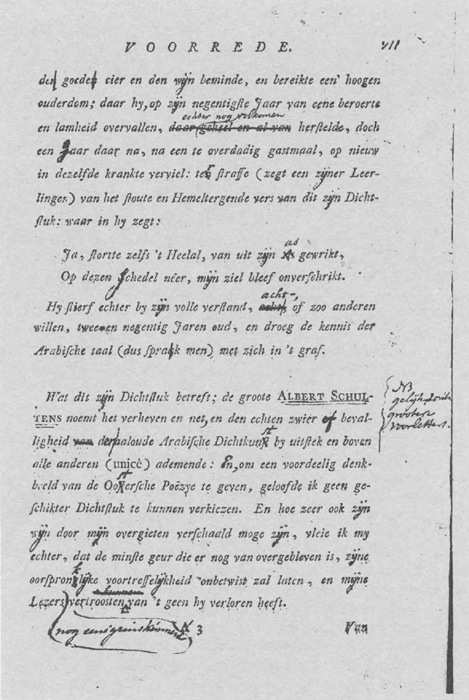 VOORREDE. VII
den goeden cier en den wijn beminde, en bereikte een' hoogen
ouderdom; daar hy, op zijn negentigste Jaar van eene beroerte
echter nog volkomen
en lamheid overvallen, daar geheel en al van herstelde, doch
een Jaar daar na, na een te overdadig gastmaal, op nieuw
in dezelfde krankte verviel: ten straffe (zegt een zijner Leer-
lingen) van het stoute en Hemeltergende vers van dit zijn Dicht-
stuk: waar in hy zegt:
Ja, stortte zelfs 't Heelal, van uit zijn as gewrikt,
Op dezen Schedel neêr, mijn ziel bleef onverschrikt.
acht-,
Hy stierf echter by zijn volle verstand, of zoo anderen
willen, tweeen negentig Jaren oud, en droeg de kennis der
Arabische taal (dus sprak men) met zich in 't graf.
Wat dit zijn Dichtstuk betreft; de groote ALBERT SCHUL-
TENS noemt het verheven en net, en den echten zwier of beval-
ligheid van der aloude Arabische Dichtkunst by uitstek en boven
alle anderen (unicè) ademende: En, om een voordeelig denk-
beeld van de Oostersche Poëzye te geven, geloofde ik geen ge-
schikter Dichtstuk te kunnen verkiezen. En hoe zeer ook zijn
wijn door mijn overgieten verschaald moge zijn, vleie ik my
echter, dat de minste geur die er nog van overgebleven is, zijne
oorspronklijke voortreffelijkheid onbetwist zal laten, en mijne
Lezers vertroosten van 't geen hy verloren heeft.
nog eenigzins kunnen
3 Van
NB
grootere
voorletters.